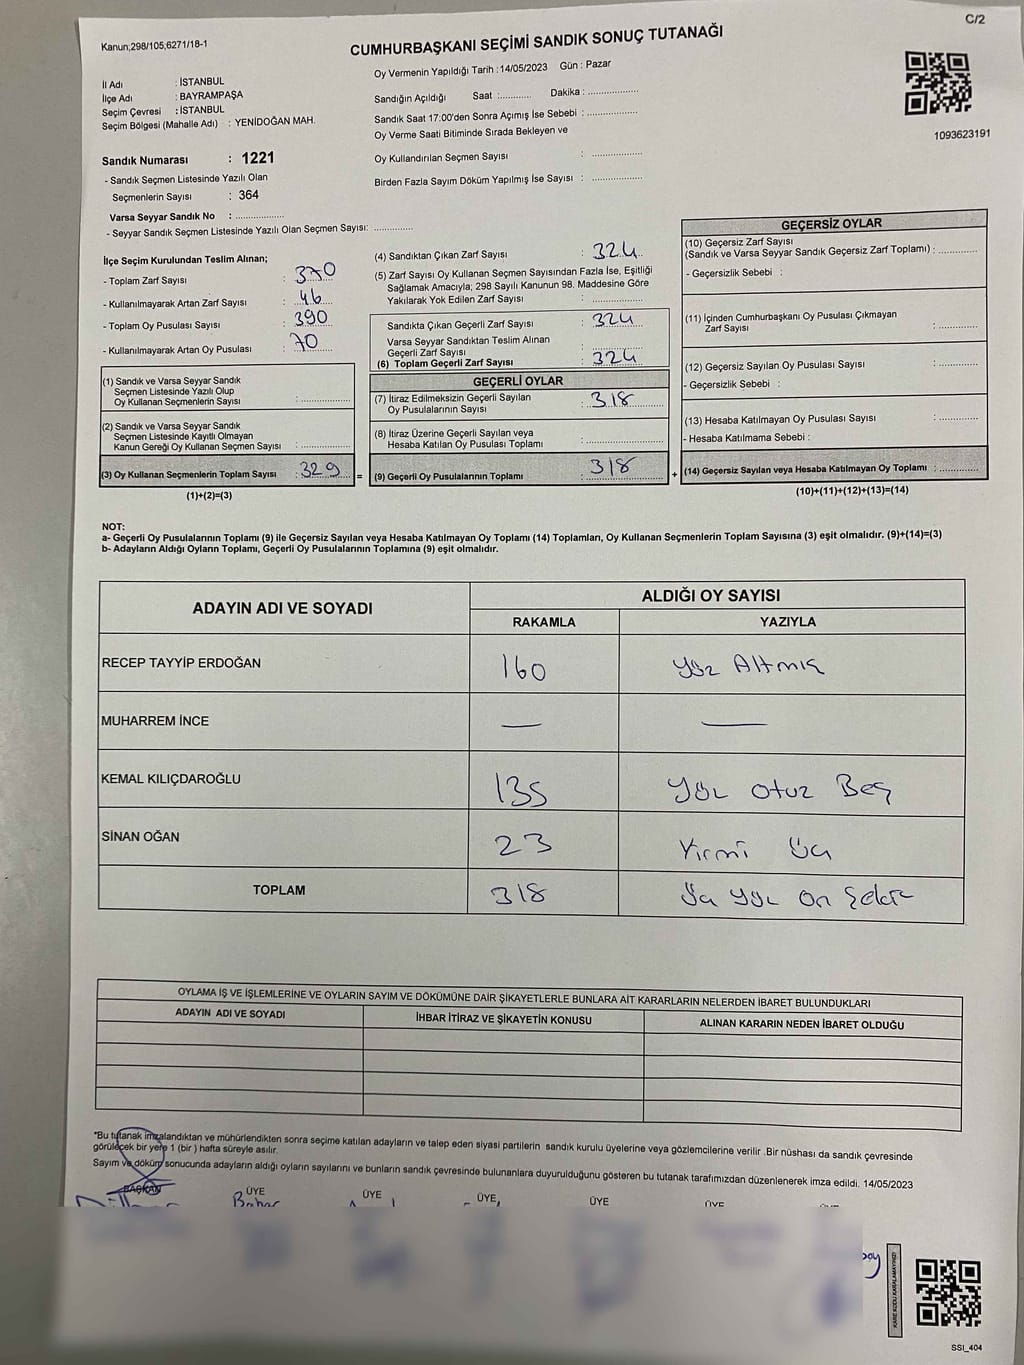 C/2
Kanun;298/105;6271/18-1
CUMHURBAŞKANI SEÇİMİ SANDIK SONUÇ TUTANAĞI
İl Adı : İSTANBUL
İlçe Adı : BAYRAMPAŞA
Seçim Çevresi : İSTANBUL
Seçim Bölgesi (Mahalle Adı) : YENİDOĞAN MAH.
Sandık Numarası : 1221
- Sandık Seçmen Listesinde Yazılı Olan
Seçmenlerin Sayısı : 364
Varsa Seyyar Sandık No : ................
- Seyyar Sandık Seçmen Listesinde Yazılı Olan Seçmen Sayısı: .............
Oy Vermenin Yapıldığı Tarih : 14/05/2023 Gün : Pazar
Sandığın Açıldığı Saat :........... Dakika : .................
Sandık Saat 17:00'den Sonra Açımış İse Sebebi : .................
Oy Verme Saati Bitiminde Sırada Bekleyen ve
Oy Kullandırılan Seçmen Sayısı : .................
Birden Fazla Sayım Döküm Yapılmış İse Sayısı : .................
1093623191
İlçe Seçim Kurulundan Teslim Alınan;
- Toplam Zarf Sayısı : 370
- Kullanılmayarak Artan Zarf Sayısı : 46
- Toplam Oy Pusulası Sayısı : 390
- Kullanılmayarak Artan Oy Pusulası : 70
(1) Sandık ve Varsa Seyyar Sandık
Seçmen Listesinde Yazılı Olup
Oy Kullanan Seçmenlerin Sayısı : .................
(2) Sandık ve Varsa Seyyar Sandık
Seçmen Listesinde Kayıtlı Olmayan
Kanun Gereği Oy Kullanan Seçmen Sayısı : .................
(3) Oy Kullanan Seçmenlerin Toplam Sayısı : 329 =
(1)+(2)=(3)
(4) Sandıktan Çıkan Zarf Sayısı : 324
(5) Zarf Sayısı Oy Kullanan Seçmen Sayısından Fazla İse, Eşitliği
Sağlamak Amacıyla; 298 Sayılı Kanunun 98. Maddesine Göre
Yakılarak Yok Edilen Zarf Sayısı : .................
Sandıkta Çıkan Geçerli Zarf Sayısı : 324
Varsa Seyyar Sandıktan Teslim Alınan
Geçerli Zarf Sayısı : .................
(6) Toplam Geçerli Zarf Sayısı : 324
GEÇERLİ OYLAR
(7) İtiraz Edilmeksizin Geçerli Sayılan
Oy Pusulalarının Sayısı : 318
(8) İtiraz Üzerine Geçerli Sayılan veya
Hesaba Katılan Oy Pusulası Toplamı : .................
(9) Geçerli Oy Pusulalarının Toplamı : 318 +
GEÇERSİZ OYLAR
(10) Geçersiz Zarf Sayısı
(Sandık ve Varsa Seyyar Sandık Geçersiz Zarf Toplamı) : .............
- Geçersizlik Sebebi :
(11) İçinden Cumhurbaşkanı Oy Pusulası Çıkmayan
Zarf Sayısı : .............
(12) Geçersiz Sayılan Oy Pusulası Sayısı : .............
- Geçersizlik Sebebi :
(13) Hesaba Katılmayan Oy Pusulası Sayısı : .............
- Hesaba Katılmama Sebebi :
(14) Geçersiz Sayılan veya Hesaba Katılmayan Oy Toplamı : .............
(10)+(11)+(12)+(13)=(14)
NOT:
a- Geçerli Oy Pusulalarının Toplamı (9) ile Geçersiz Sayılan veya Hesaba Katılmayan Oy Toplamı (14) Toplamları, Oy Kullanan Seçmenlerin Toplam Sayısına (3) eşit olmalıdır. (9)+(14)=(3)
b- Adayların Aldığı Oyların Toplamı, Geçerli Oy Pusulalarının Toplamına (9) eşit olmalıdır.
ADAYIN ADI VE SOYADI ALDIĞI OY SAYISI
RAKAMLA YAZIYLA
RECEP TAYYİP ERDOĞAN 160 Yüz Altmış
MUHARREM İNCE — —
KEMAL KILIÇDAROĞLU 135 Yüz Otuz Beş
SİNAN OĞAN 23 Yirmi Üç
TOPLAM 318 Üç Yüz On Sekiz
OYLAMA İŞ VE İŞLEMLERİNE VE OYLARIN SAYIM VE DÖKÜMÜNE DAİR ŞİKAYETLERLE BUNLARA AİT KARARLARIN NELERDEN İBARET BULUNDUKLARI
ADAYIN ADI VE SOYADI İHBAR İTİRAZ VE ŞİKAYETİN KONUSU ALINAN KARARIN NEDEN İBARET OLDUĞU
*Bu tutanak imzalandıktan ve mühürlendikten sonra seçime katılan adayların ve talep eden siyasi partilerin sandık kurulu üyelerine veya gözlemcilerine verilir .Bir nüshası da sandık çevresinde
görülecek bir yere 1 (bir ) hafta süreyle asılır.
Sayım ve döküm sonucunda adayların aldığı oyların sayılarını ve bunların sandık çevresinde bulunanlara duyurulduğunu gösteren bu tutanak tarafımızdan düzenlenerek imza edildi. 14/05/2023
BAŞKAN ÜYE ÜYE ÜYE ÜYE ÜYE
Bahar
KARE KODU KARALAMAYINIZ!
SSI_404